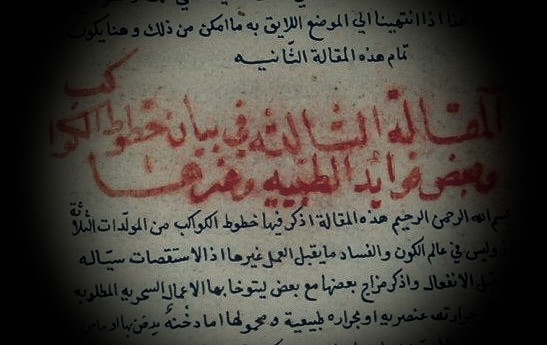 هنا اذا انتهينا الى الموضع اللايق به ما امكن من ذلك وهنا يكون
تمام هذه المقالة الثانيه
المقالة الثالثه في بيان خطوط الكواكب
وبعض فوايد الطبيه وغيرها
بسم الله الرحمن الرحيم هذه المقالة اذكر فيها خطوط الكواكب من المولدات الثلاثة
اذ وليس في عالم الكون والفساد ما يقبل العمل غيرها اذ الاستقصات سيّاله
الانفعال واذكر مزاج بعضها مع بعض ليتوخا بها الاعمال السحريه المطلوبه
حرارته عنصريه او بحراره طبيعية ومحمولها اما دخنة يدخن بها